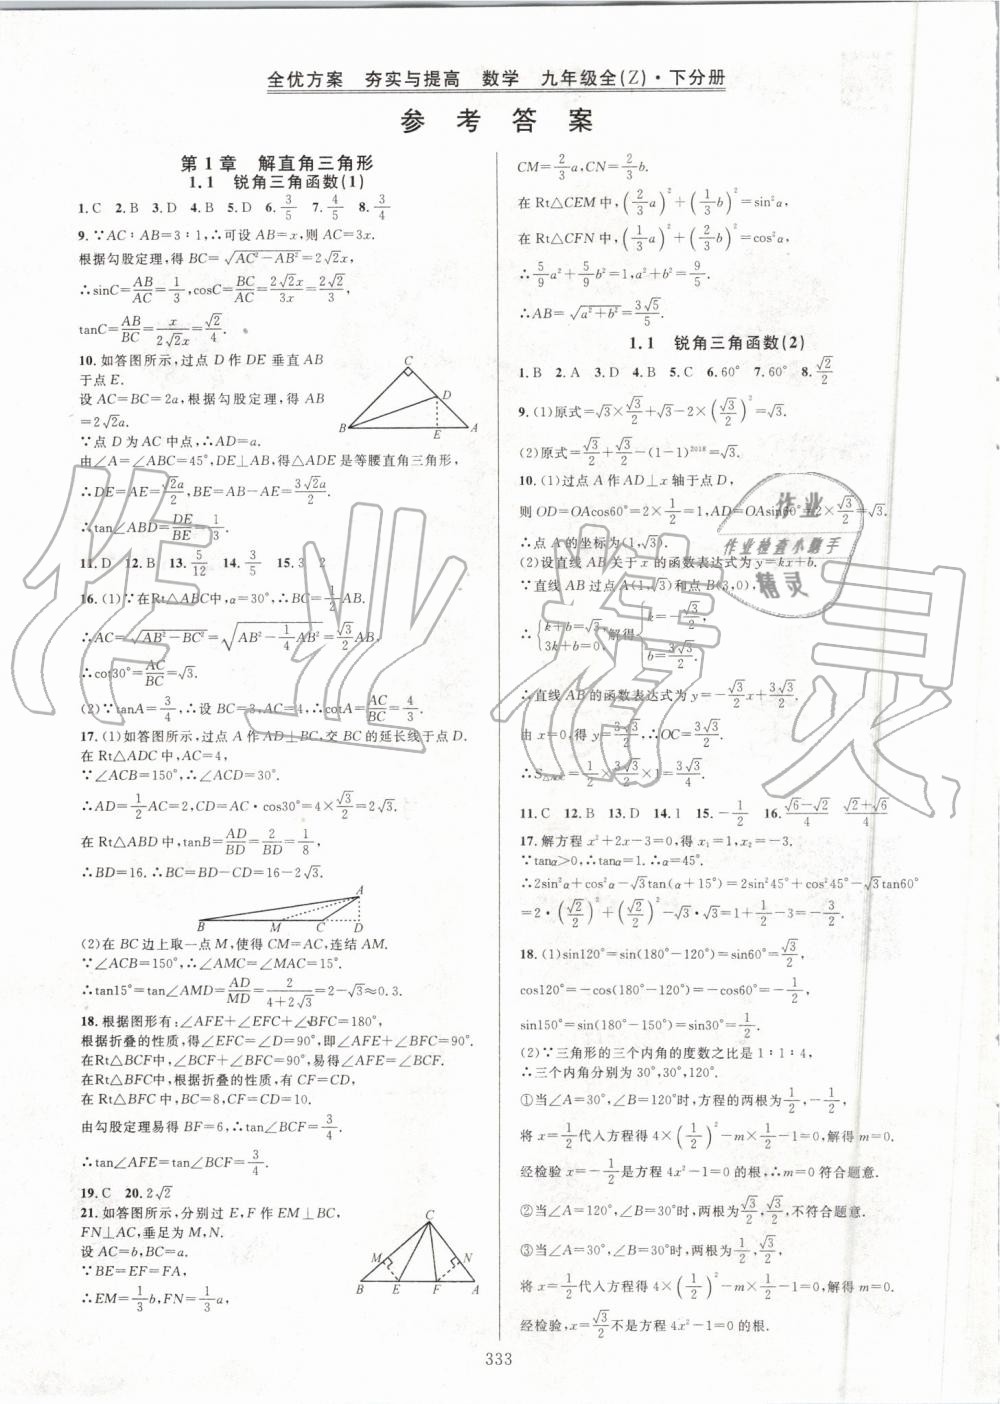 全优方案 夯实与提高 数学 九年级全(Z)·下分册
参考答案
第1章 解直角三角形
1.1 锐角三角函数(1)
1.C 2.B 3.D 4.B 5.D 6.3/5 7.4/5 8.3/4
9.∵AC∶AB=3∶1,∴可设AB=x,则AC=3x.
根据勾股定理,得BC=√(AC²-AB²)=2√2x,
∴sinC=AB/AC=1/3,cosC=BC/AC=2√2x/3x=2√2/3,
tanC=AB/BC=x/2√2x=√2/4.
10.如答图所示,过点D作DE垂直AB
于点E.
设AC=BC=2a,根据勾股定理,得AB
=2√2a.
∵点D为AC中点,∴AD=a.
由∠A=∠ABC=45°,DE⊥AB,得△ADE是等腰直角三角形,
∴DE=AE=√2a/2,BE=AB-AE=3√2a/2,
∴tan∠ABD=DE/BE=1/3.
C
D
B E A
11.D 12.B 13.5/12 14.3/5 15.3 2
16.(1)∵在Rt△ABC中,α=30°,∴BC=1/2AB.
∴AC=√(AB²-BC²)=√(AB²-1/4AB²)=√3/2AB,
∴cot30°=AC/BC=√3.
(2)∵tanA=3/4,∴设BC=3,AC=4,∴cotA=AC/BC=4/3.
17.(1)如答图所示,过点A作AD⊥BC,交BC的延长线于点D.
在Rt△ADC中,AC=4,
∵∠ACB=150°,∴∠ACD=30°.
∴AD=1/2AC=2,CD=AC·cos30°=4×√3/2=2√3.
在Rt△ABD中,tanB=AD/BD=2/BD=1/8,
∴BD=16.∴BC=BD-CD=16-2√3.
A
B M C D
(2)在BC边上取一点M,使得CM=AC,连结AM.
∵∠ACB=150°,∴∠AMC=∠MAC=15°.
∴tan15°=tan∠AMD=AD/MD=2/(4+2√3)=2-√3≈0.3.
18.根据图形有:∠AFE+∠EFC+∠BFC=180°,
根据折叠的性质,得∠EFC=∠D=90°,即∠AFE+∠BFC=90°.
在Rt△BCF中,∠BCF+∠BFC=90°,易得∠AFE=∠BCF.
在Rt△BFC中,根据折叠的性质,有CF=CD,
在Rt△BFC中,BC=8,CF=CD=10.
由勾股定理易得BF=6,∴tan∠BCF=3/4.
∴tan∠AFE=tan∠BCF=3/4.
19.C 20.2√2
21.如答图所示,分别过E,F作EM⊥BC,
FN⊥AC,垂足为M,N.
设AC=b,BC=a.
∵BE=EF=FA,
∴EM=1/3b,FN=1/3a,
C
M N
B E F A
CM=2/3a,CN=2/3b.
在Rt△CEM中,(2/3a)²+(1/3b)²=sin²α,
在Rt△CFN中,(1/3a)²+(2/3b)²=cos²α,
∴5/9a²+5/9b²=1,a²+b²=9/5.
∴AB=√(a²+b²)=3√5/5.
1.1 锐角三角函数(2)
1.B 2.A 3.D 4.B 5.C 6.60° 7.60° 8.√2/2
9.(1)原式=√3×√3/2+√3-2×(√3/2)²=√3.
(2)原式=√3/2+√3/2-(1-1)²⁰¹⁸=√3.
10.(1)过点A作AD⊥x轴于点D,
则OD=OAcos60°=2×1/2=1,AD=OAsin60°=2×√3/2=√3.
∴点A的坐标为(1,√3).
(2)设直线AB关于x的函数表达式为y=kx+b.
∵直线AB过点A(1,√3)和点B(3,0),
∴{k+b=√3, 3k+b=0, 解得{k=-√3/2, b=3√3/2.
∴直线AB的函数表达式为y=-√3/2x+3√3/2.
由x=0,得y=3√3/2,∴OC=3√3/2.
∴S△AOC=1/2×3√3/2×1=3√3/4.
11.C 12.B 13.D 14.1 15.-1/2 16.(√6-√2)/4 (√2+√6)/4
17.解方程x²+2x-3=0,得x₁=1,x₂=-3.
∵tanα>0,∴tanα=1.∴α=45°.
∴2sin²α+cos²α-√3tan(α+15°)=2sin²45°+cos²45°-√3tan60°
=2·(√2/2)²+(√2/2)²-√3·√3=1+1/2-3=-3/2.
18.(1)sin120°=sin(180°-120°)=sin60°=√3/2,
cos120°=-cos(180°-120°)=-cos60°=-1/2,
sin150°=sin(180°-150°)=sin30°=1/2.
(2)∵三角形的三个内角的度数之比是1∶1∶4,
∴三个内角分别为30°,30°,120°.
①当∠A=30°,∠B=120°时,方程的两根为1/2,-1/2,
将x=1/2代入方程得4×(1/2)²-m×1/2-1=0,解得m=0.
经检验x=-1/2是方程4x²-1=0的根,∴m=0符合题意.
②当∠A=120°,∠B=30°时,两根为√3/2,√3/2,不符合题意.
③当∠A=30°,∠B=30°时,两根为1/2,√3/2,
将x=1/2代入方程得4×(1/2)²-m×1/2-1=0,解得m=0.
经检验,x=√3/2不是方程4x²-1=0的根.
333
作业
作业检查小助手
精灵
作业精灵